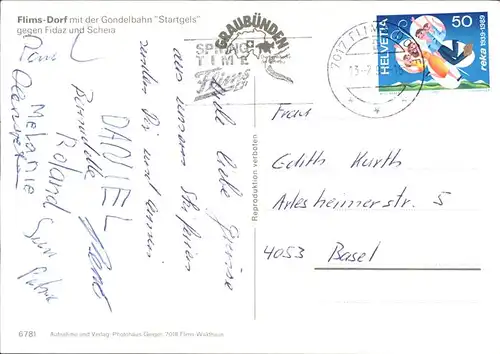 Flims-Dorf mit der Gondelbahn "Startgels"
gegen Fidaz und Scheia
GRAUBÜNDEN
SPRING
TIME
Flims
7017 FLIMS
HELVETIA
50
reka 1939-1989
Viele liebe Grüsse
aus unseren Skiferien
senden Dir und
DANIEL
Bernadette
Roland
Melanie
Reproduktion verboten
Frau
Edith Kurth
Arlesheimerstr. 5
4053 Basel
6781 Aufnahme und Verlag: Photohaus Geiger, 7018 Flims-Waldhaus